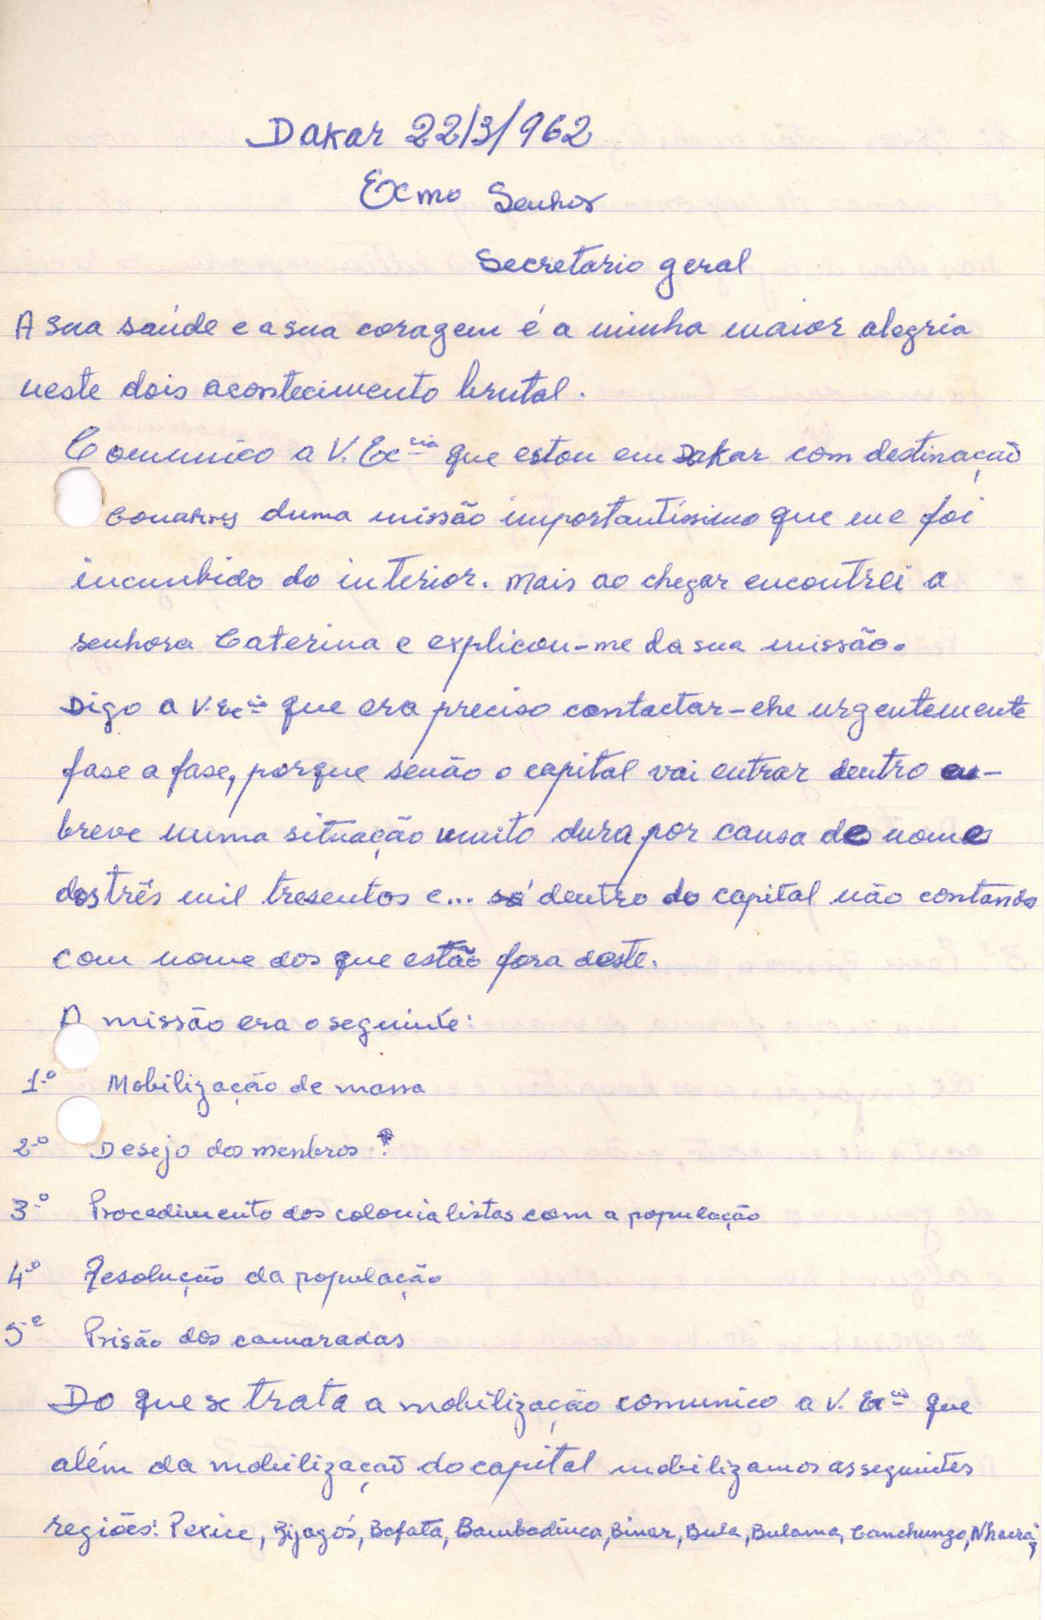 Dakar 22/3/962
Excmo Senhor
Secretario geral
A sua saúde e a sua coragem é a minha maior alegria
neste dois acontecimento brutal.
Comunico a V. Ec cia que estou em Dakar com destinação
Conakry duma missão importantíssimo que me foi
incunbido do interior. Mais ao chegar encontrei a
senhora Caterina e explicou-me da sua missão.
Digo a V. Ec cia que era preciso contactar-che urgentemente
fase a fase, porque senão o capital vai entrar dentro em-
breve numa situação muito dura por causa de nomes
dos três mil tresentos e... só dentro do capital não contando
com nome dos que estão fora deste.
A missão era o seguinte:
1º Mobilização de massa
2º Desejo dos menbros ?
3º Procedimento dos colonialistas com a população
4º Resolução da população
5º Prisão dos camaradas
Do que se trata a mobilização comunico a V. Ec cia que
além da mobilização do capital mobilizamos as seguintes
regiões: Pexice, Bijagós, Bafata, Bambadinca, Binar, Bula, Bulama, Canchungo, Nhacra,